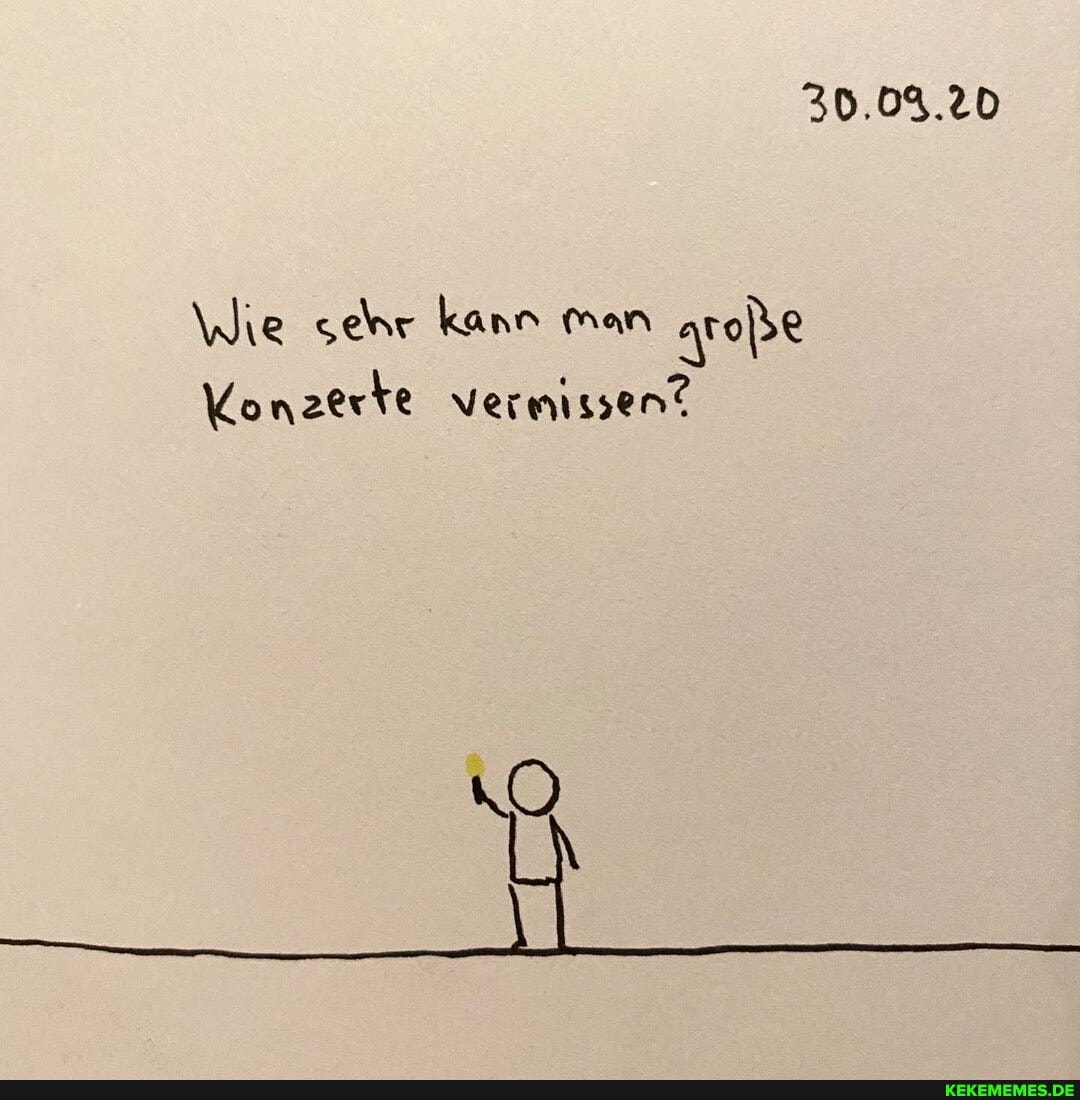 30.09.20
Wie sehr kann man große
Konzerte vermissen?
KEKEMEMES.DE